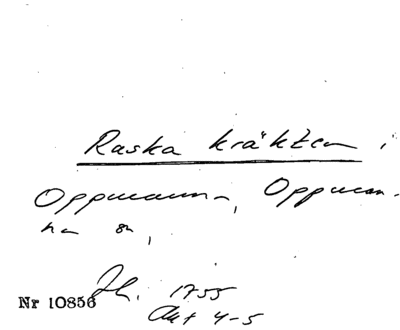 Raska kräkten i
Oppmanna, Oppman-
na sn,
Jh. 1755
Akt 4-5
Nr 10856